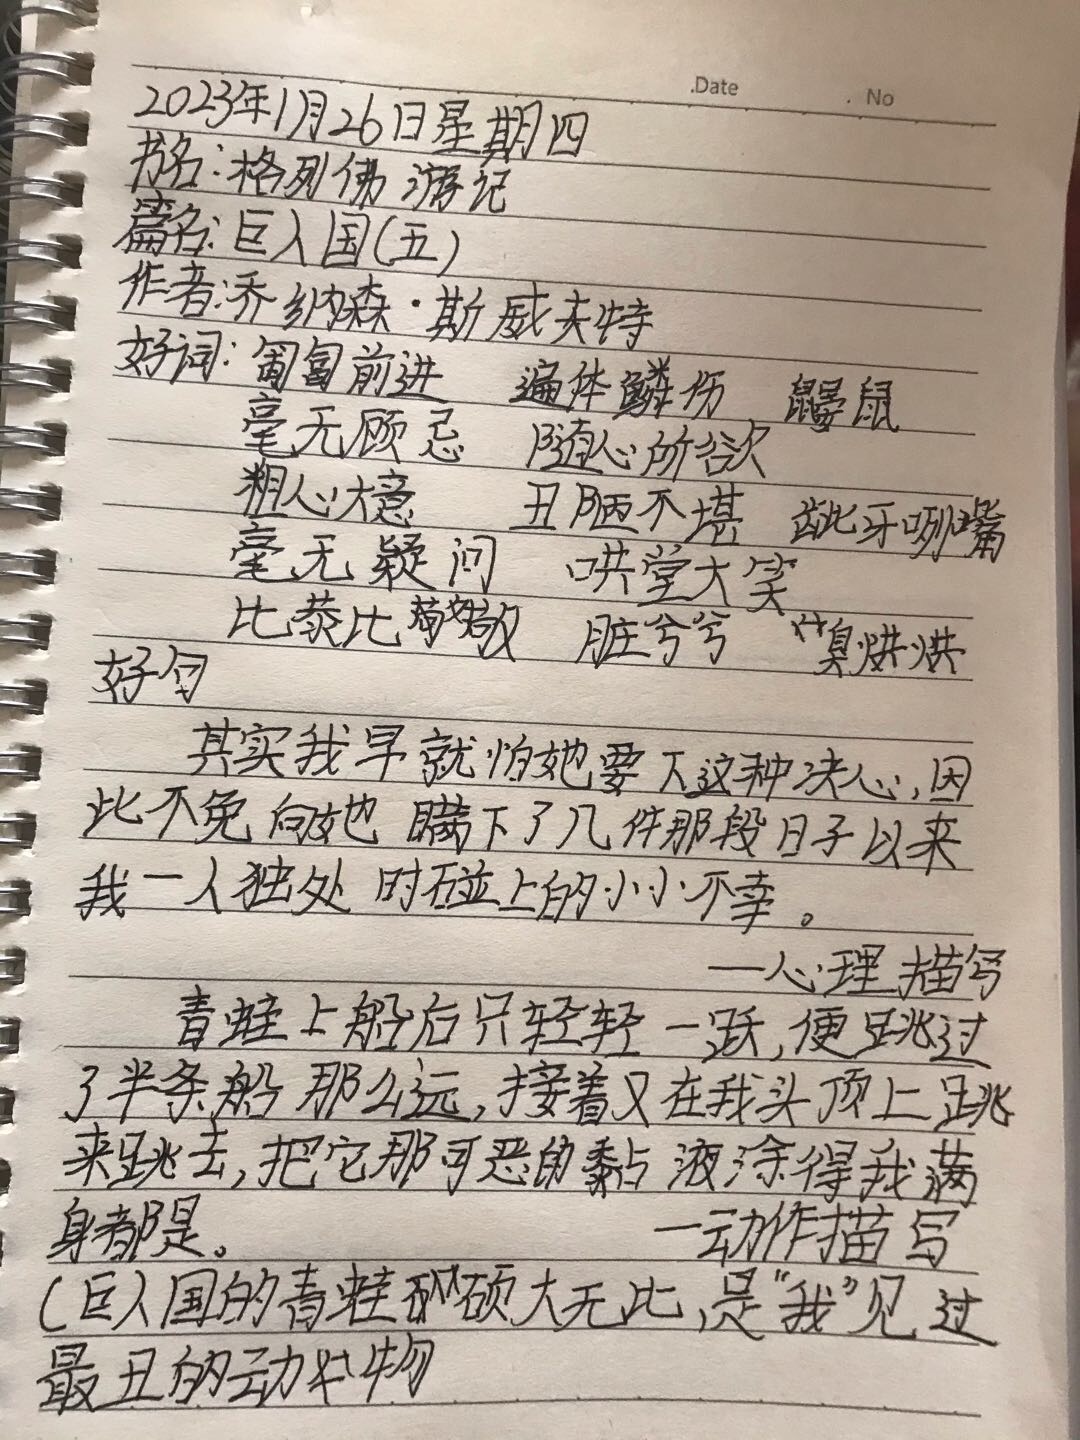 Date No
2023年1月26日星期四
书名:格列佛游记
篇名:巨人国(五)
作者:乔纳森·斯威夫特
好词:匍匐前进 遍体鳞伤 鼹鼠
毫无顾忌 随心所欲
粗心大意 丑陋不堪 龇牙咧嘴
毫无疑问 哄堂大笑
比泰比 脏兮兮 臭烘烘
好句
其实我早就怕她要下这种决心,因
此不免向她瞒下了几件那段日子以来
我一人独处时碰上的小小不幸。
—心理描写
青蛙上船后只轻轻一跃,便跳过
了半条船那么远,接着又在我头顶上跳
来跳去,把它那可恶的黏液涂得我满
身都是。 —动作描写
(巨人国的青蛙硕大无比,是“我”见过
最丑的动物